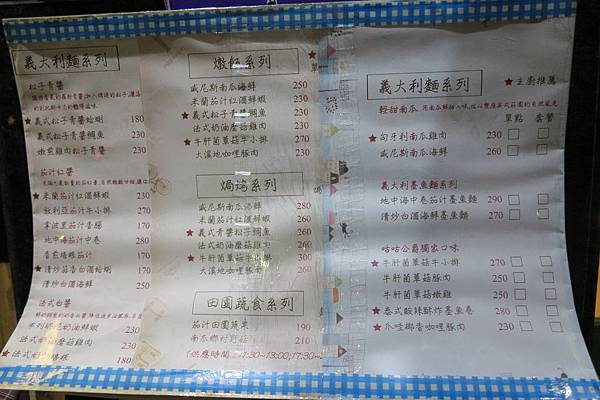 義大利麵系列
松子青醬
★義式松子青醬蛤蜊 180
義式松子青醬鯛魚 230
嫩煎雞肉松子青醬 230
茄汁紅醬
★米蘭茄汁紅酒鮮蝦 230
牛小排 270
拿波里茄汁香腸 170
地中海茄汁中卷 270
青蔬培根茄汁 170
★清炒蒜香白酒蛤蜊 170
清炒蒜香白酒海鮮 250
法式白醬
奶油鮮蝦 230
法式奶油蘑菇雞肉 230
★法式奶油培根 180
燉飯系列
威尼斯南瓜海鮮 250
米蘭茄汁紅酒鮮蝦 230
★義式松子青醬鯛魚 230
法式奶油蘑菇雞肉 230
★牛肝菌蕈菇牛小排 270
大溪地咖哩豚肉 230
焗烤系列
威尼斯南瓜海鮮 280
米蘭茄汁紅酒鮮蝦 260
★義式松子青醬鯛魚 260
法式奶油蘑菇雞肉 260
★牛肝菌蕈菇牛小排 300
大溪地咖哩豚肉 260
田園蔬食系列
茄汁田園蔬菜 190
南瓜鄉村野菇 210
義大利麵系列 ★主廚推薦
輕甜南瓜
單點 套餐
★匈牙利南瓜雞肉 230
威尼斯南瓜海鮮 260
義大利墨魚麵系列
地中海中卷茄汁墨魚麵 290
清炒白酒海鮮墨魚麵 270
咕咕公爵獨家口味
★牛肝菌蕈菇牛小排 290
牛肝菌蕈菇豚肉 250
牛肝菌蕈菇嫩雞 250
★泰式酸辣酥炸墨魚卷 280
★爪哇椰香咖哩豚肉 230